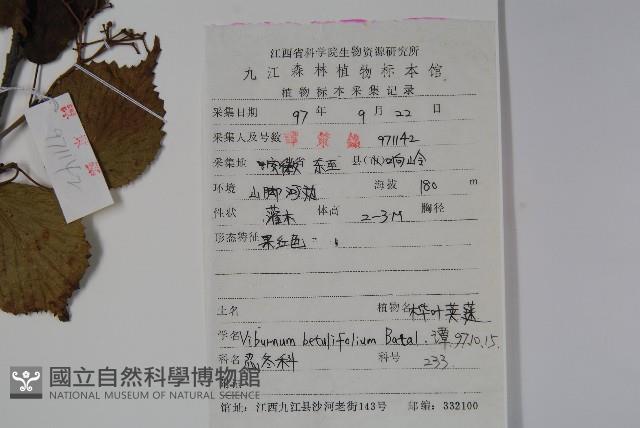 江西省科学院生物资源研究所
九江森林植物标本馆
植物标本采集记录
采集日期 97 年 9 月 22 日
采集人及号数 譚策銘 971142
采集地 安徽省 东至 县(市)
环境 山脚河边 海拔 180 m
性状 灌木 体高 2-3M 胸径
形态特征 果红色
土名 植物名 桦叶荚蒾
学名 Viburnum betulifolium Batal. 譚. 97.10.15.
科名 忍冬科 科号 233.
馆址:江西九江县沙河老街143号 邮编:332100
國立自然科學博物館
NATIONAL MUSEUM OF NATURAL SCIENCE